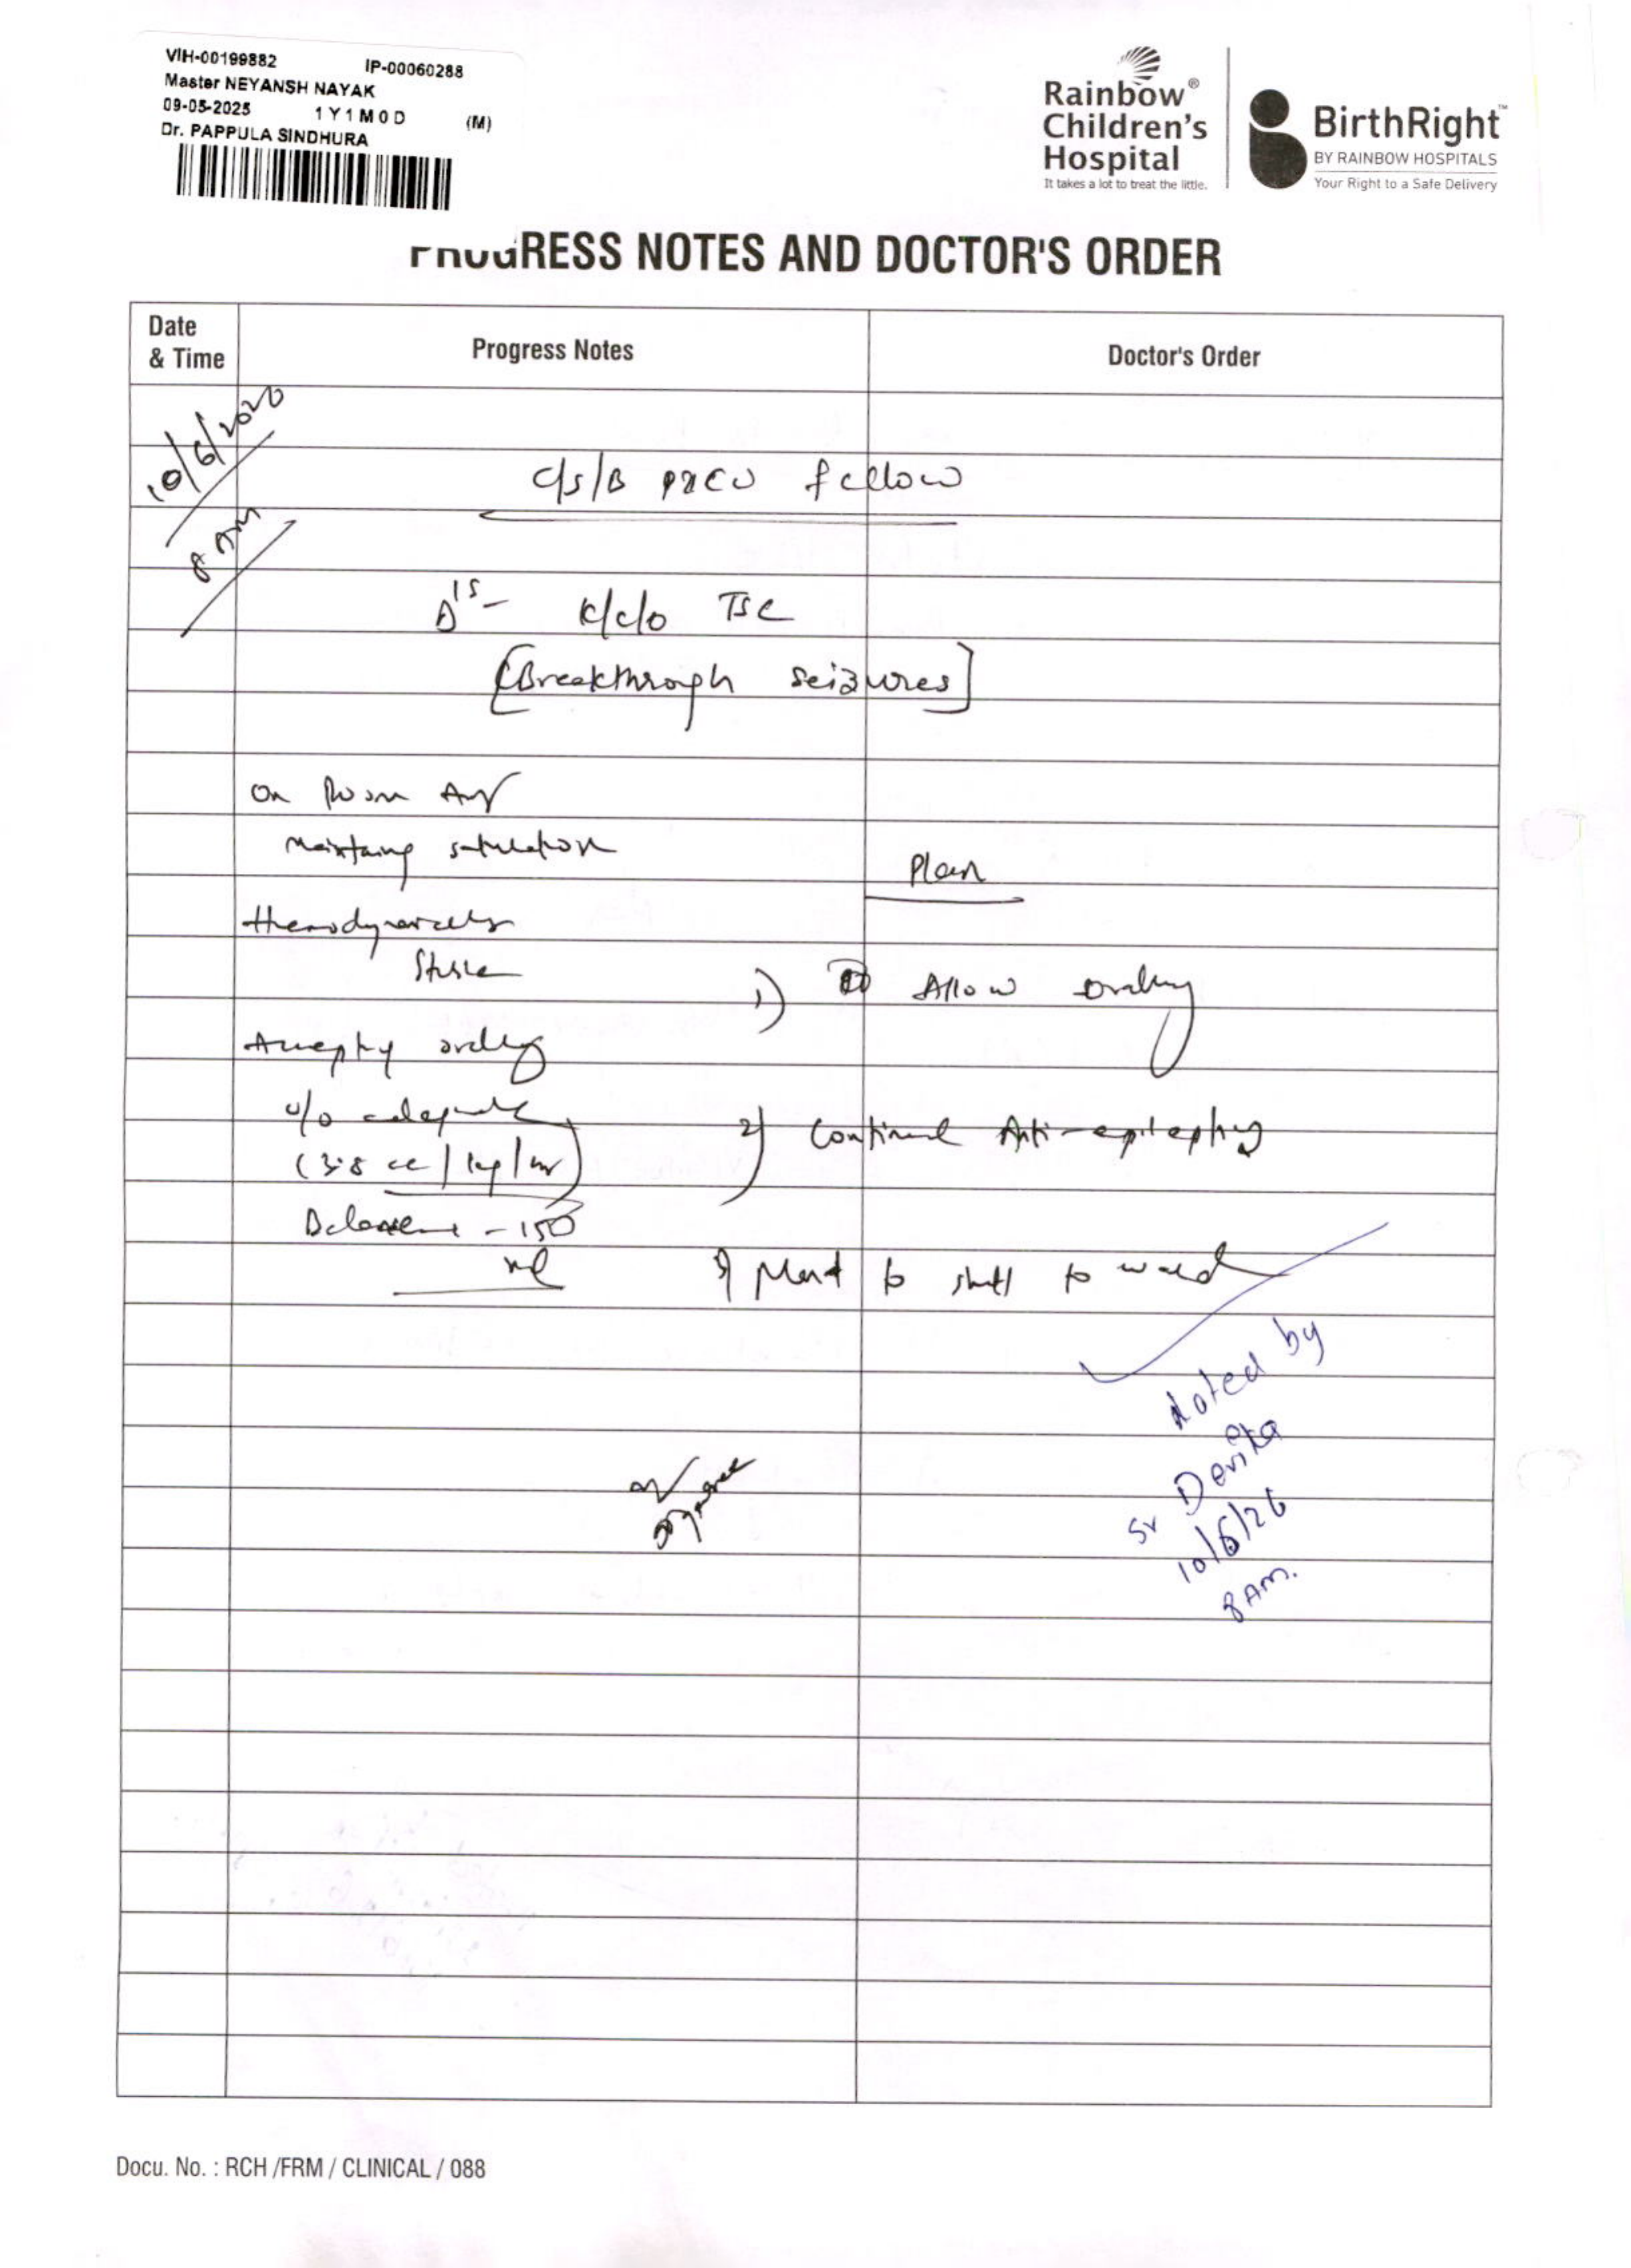 VIH-00199882 IP-00060288
Master NEYANSH NAYAK
09-05-2025 1Y1M0D (M)
Dr. PAPPULA SINDHURA
Rainbow®
Children's
Hospital
It takes a lot to treat the little.
BirthRight™
BY RAINBOW HOSPITALS
Your Right to a Safe Delivery
PROGRESS NOTES AND DOCTOR'S ORDER
Date
& Time
Progress Notes
Doctor's Order
10/6/2020
8 AM
C/S/B PICU fellow
Δis- K/C/O TSC
[Breakthrough seizures]
On Room Air
Maintaing saturation
Plan
Hemodynamically
Stable
1) Allow orally
Accepting orally
u/o adequate
(3.8 cc/kg/hr)
2) Continue Anti-epileptics
Balance - 150
ml
3) Plan to shift to ward
Noted by
Sr Devika
10/6/26
8AM.
Docu. No. : RCH /FRM / CLINICAL / 088